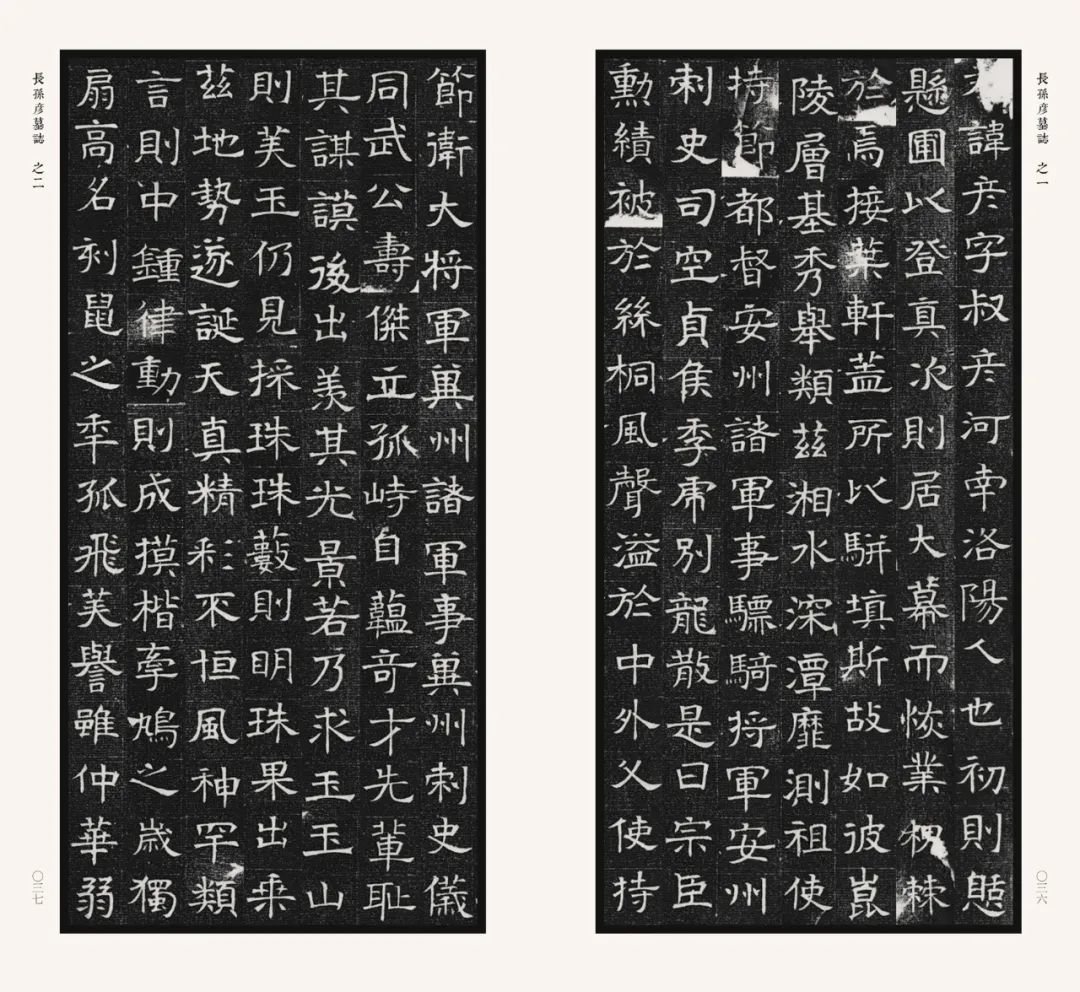 長孫彦墓誌 之一
諱彦字叔彦河南洛陽人也初則憩
懸圃以登真次則居大幕而恢業槐棘
於焉接葉軒蓋所以駢填斯故如彼崑
陵層基秀舉類茲湘水深潭靡測祖使
持節都督安州諸軍事驃騎將軍安州
刺史司空貞侯季虎別龍散是曰宗臣
勳績被於絲桐風聲溢於中外父使持
〇三六
節衛大將軍冀州諸軍事冀州刺史儀
同武公壽傑立孤峙自蘊奇才先輩恥
其謀謨後出羨其光景若乃求玉玉山
則美玉仍見採珠珠藪則明珠果出乘
茲地勢遂誕天真精彩不恒風神罕類
言則中鍾律動則成摸楷牽鳩之歲獨
扇高名刻鼠之年孤飛美譽雖仲華弱
長孫彦墓誌 之二
〇三七